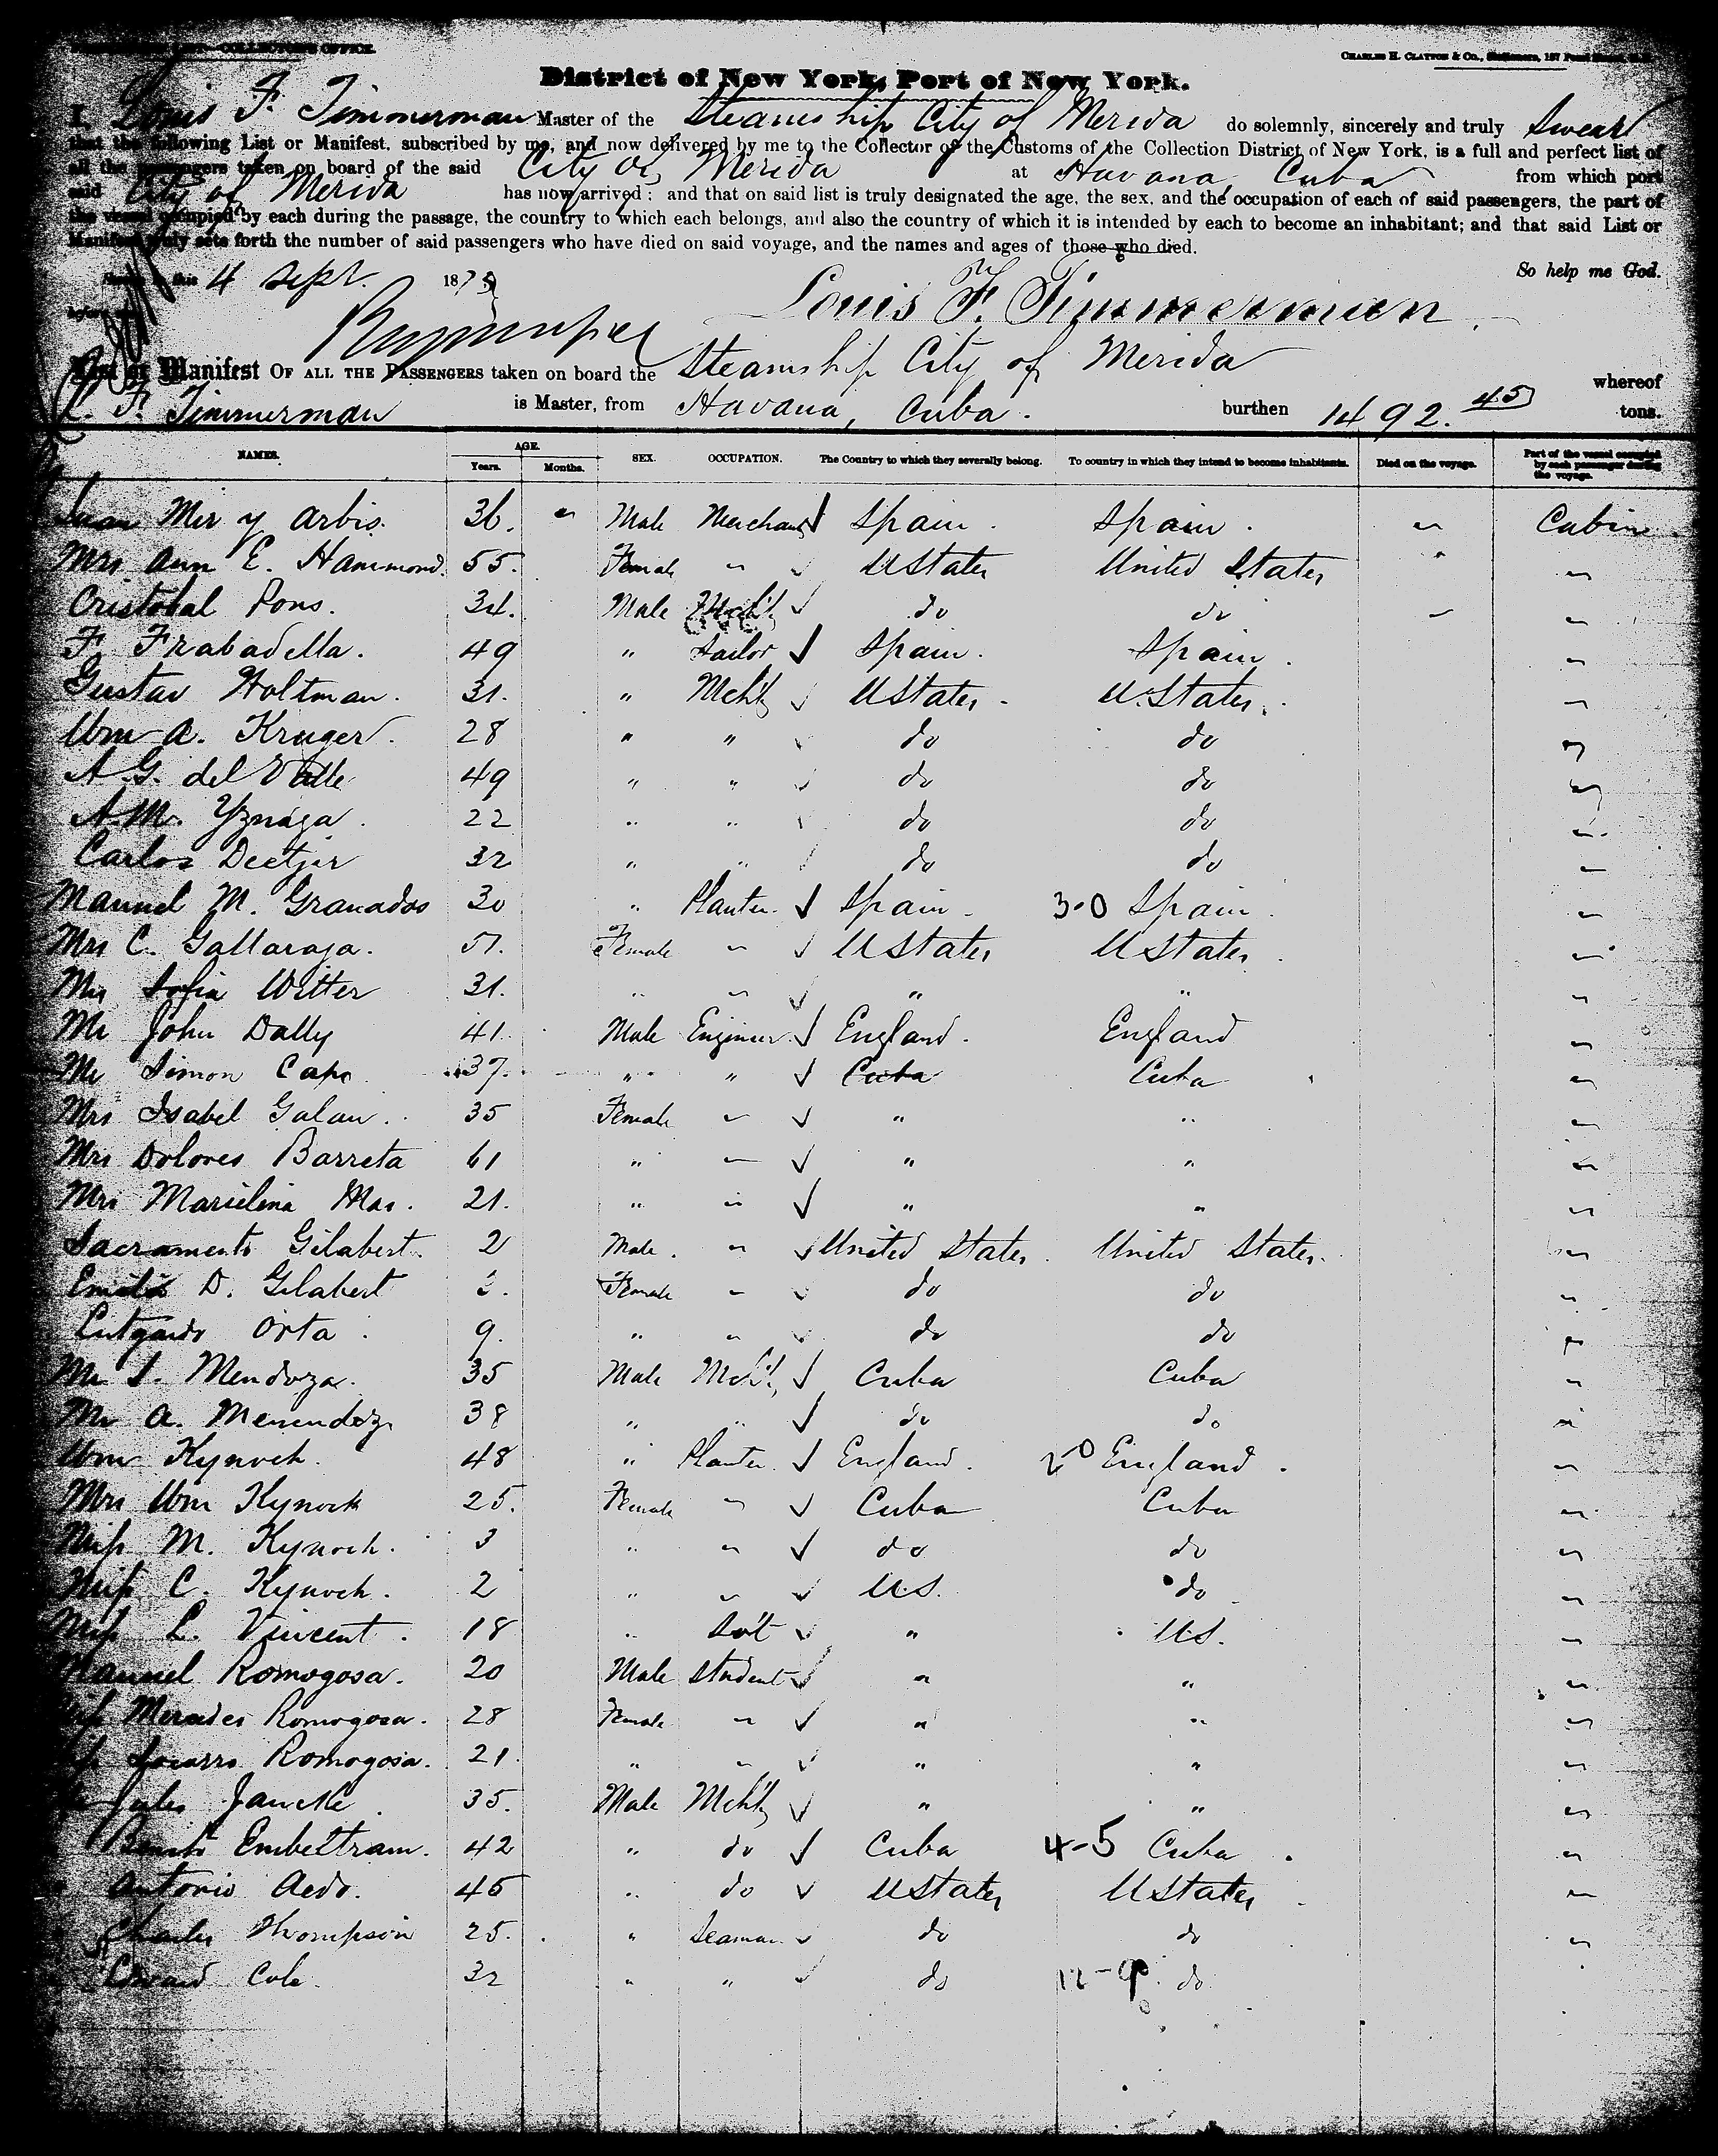 COLLECTOR'S OFFICE.
CHARLES H. CLAYTON & CO., Stationers, 157 Pearl
District of New York, Port of New York.
I, Louis F. Timmerman Master of the Steamship City of Merida do solemnly, sincerely and truly swear
that the following List or Manifest, subscribed by me, and now delivered by me to the Collector of the Customs of the Collection District of New York, is a full and perfect list of
all the passengers taken on board of the said City of Merida at Havana, Cuba from which port
said City of Merida has now arrived; and that on said list is truly designated the age, the sex, and the occupation of each of said passengers, the part of
the vessel occupied by each during the passage, the country to which each belongs, and also the country of which it is intended by each to become an inhabitant; and that said List or
Manifest truly sets forth the number of said passengers who have died on said voyage, and the names and ages of those who died.
So help me God.
this 4 Sept. 187
Louis F. Timmerman.
List or Manifest OF ALL THE PASSENGERS taken on board the Steamship City of Merida whereof
L. F. Timmerman is Master, from Havana, Cuba. burthen 1492. 45 tons.
NAMES. AGE. Years. Months. SEX. OCCUPATION. The Country to which they severally belong. To country in which they intend to become inhabitants. Died on the voyage. Part of the vessel occupied by each passenger during the voyage.
Juan Mir y Arbis. 36. " Male Merchant Spain. Spain. " Cabin
Mrs. Ann E. Hammond. 55. Female " UStates United States " "
Cristobal Pons. 34. Male Mcht do do "
F. Frabadella. 49 " Tailor Spain. Spain. "
Gustav Holtman. 31. " Mcht UStates. U.States. "
Wm A. Kruger. 28 " " do do "
A. G. del Valle 49 " " do do "
A. M. Yznaga. 22 " " do do "
Carlos Deetjer 32 " " do do "
Manuel M. Granados 30 " Planter. Spain. 3-0 Spain. "
Mrs C. Gallaraga. 51. Female " UStates UStates. "
Mrs Sofia Witter 31. " " " " "
Mr John Dally 41. Male Engineer England. England "
Mr Simon Capo 37. " " Cuba Cuba "
Mrs Isabel Galan. 35 Female " " " "
Mrs Dolores Barreta 61 " " " " "
Mrs Marielina Mas. 21. " " " " "
Sacramento Gilabert. 2 Male. " United States United States. "
Emilia D. Gilabert Female " do do "
Orta. 9. " " do do "
Mr S. Mendoza. 35 Male Mcht Cuba Cuba "
Mr A. Menendez 38 " " do do "
Wm Kynoch. 48 " Planter. England. 20 England. "
Mrs Wm Kynock 25. Female " Cuba Cuba "
Miss M. Kynoch. 3 " " do do "
Miss C. Kynoch. 2 " " U.S. do "
Miss L. Vincent. 18 " Svt " U.S. "
Manuel Romogosa. 20 Male Student " " "
Miss Mercedes Romogosa. 28 Female " " " "
Miss Socarro Romogosa. 21. " " " " "
Jules Jancke. 35. Male Mcht " " "
Benito Embeltram. 42 " do Cuba 4-5 Cuba. "
Antonio Aedo. 45 " do UStates UStates "
Charles Thompson 25. " Seaman do do "
Edward Cole. 32 " " do 12-9. do